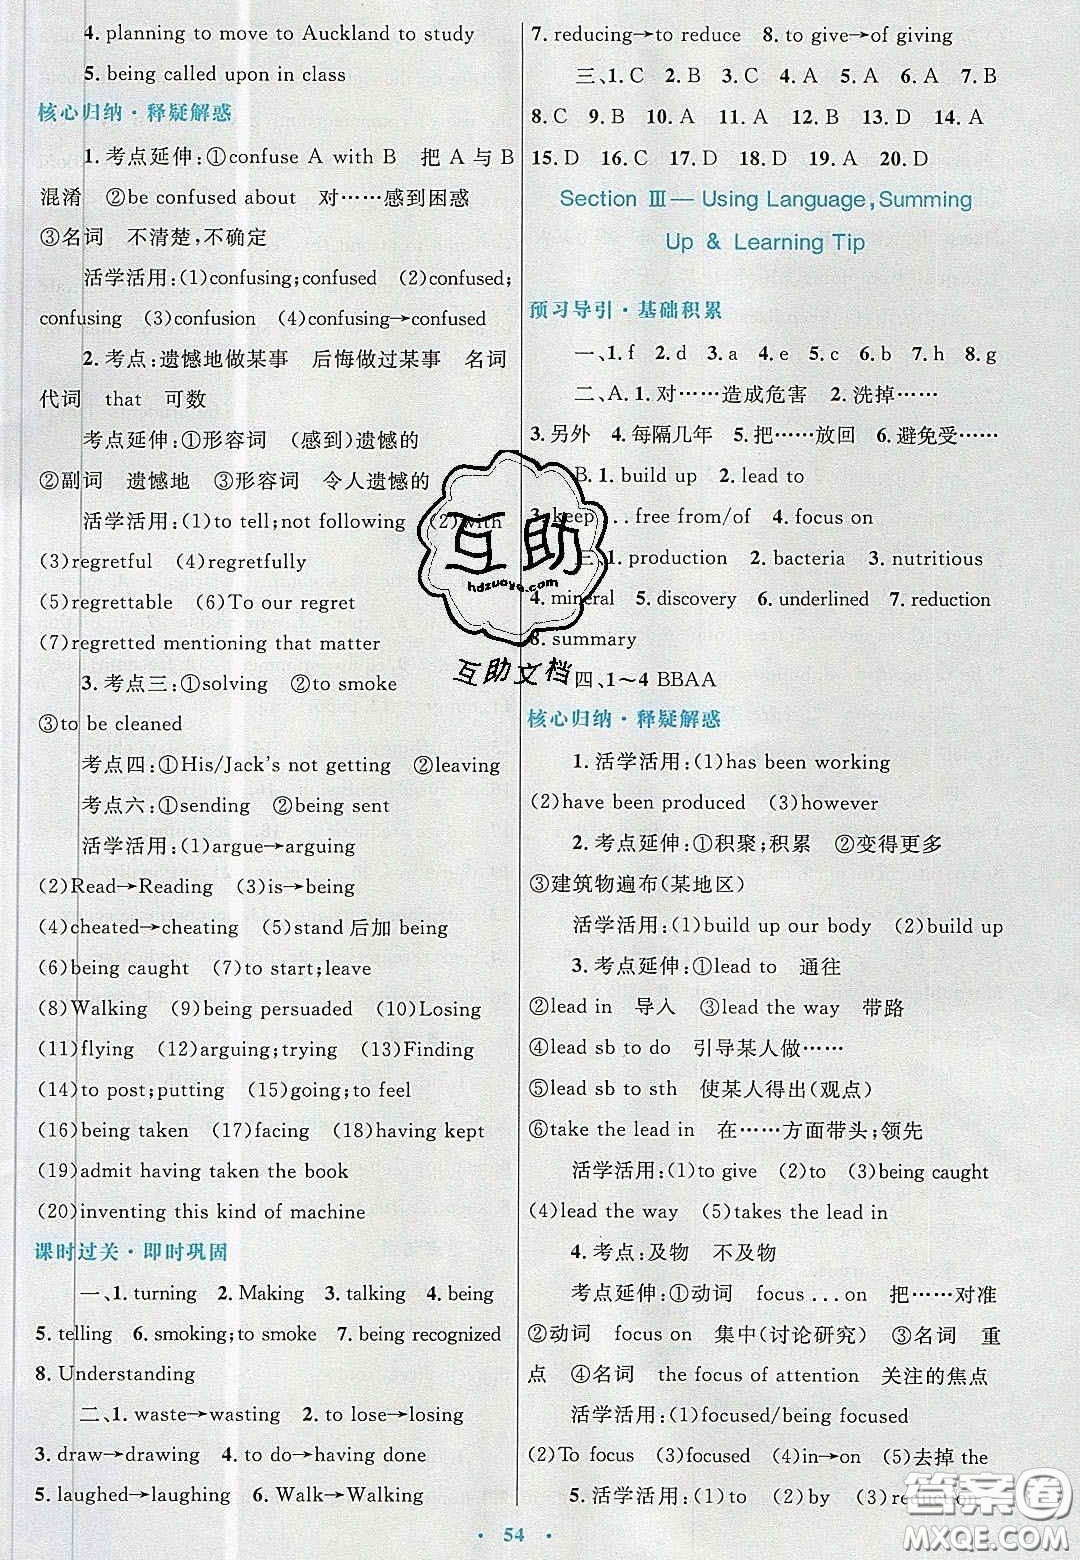 4. planning to move to Auckland to study
5. being called upon in class
核心归纳·释疑解惑
1. 考点延伸:①confuse A with B 把 A 与 B
混淆 ②be confused about 对……感到困惑
③名词 不清楚,不确定
活学活用:(1)confusing;confused (2)confused;
confusing (3)confusion (4)confusing→confused
2. 考点:遗憾地做某事 后悔做过某事 名词
代词 that 可数
考点延伸:①形容词 (感到)遗憾的
②副词 遗憾地 ③形容词 令人遗憾的
活学活用:(1)to tell;not following (2)with
(3)regretful (4)regretfully
(5)regrettable (6)To our regret
(7)regretted mentioning that matter
3. 考点三:①solving ②to smoke
③to be cleaned
考点四:①His/Jack's not getting ②leaving
考点六:①sending ②being sent
活学活用:(1)argue→arguing
(2)Read→Reading (3)is→being
(4)cheated→cheating (5)stand 后加 being
(6)being caught (7)to start;leave
(8)Walking (9)being persuaded (10)Losing
(11)flying (12)arguing;trying (13)Finding
(14)to post;putting (15)going;to feel
(16)being taken (17)facing (18)having kept
(19)admit having taken the book
(20)inventing this kind of machine
课时过关·即时巩固
一、1. turning 2. Making 3. talking 4. being
5. telling 6. smoking;to smoke 7. being recognized
8. Understanding
二、1. waste→wasting 2. to lose→losing
3. draw→drawing 4. to do→having done
5. laughed→laughing 6. Walk→Walking
7. reducing→to reduce 8. to give→of giving
三、1. C 2. B 3. C 4. A 5. A 6. A 7. B
8. C 9. B 10. A 11. B 12. A 13. D 14. A
15. D 16. C 17. B 18. D 19. A 20. D
Section Ⅲ— Using Language,Summing
Up & Learning Tip
预习导引·基础积累
一、1. f 2. d 3. a 4. e 5. c 6. b 7. h 8. g
二、A. 1. 对……造成危害 2. 洗掉……
3. 另外 4. 每隔几年 5. 把……放回 6. 避免受……
B. 1. build up 2. lead to
3. keep . . . free from/of 4. focus on
三、1. production 2. bacteria 3. nutritious
4. mineral 5. discovery 6. underlined 7. reduction
8. summary
四、1~4 BBAA
核心归纳·释疑解惑
1. 活学活用:(1)has been working
(2)have been produced (3)however
2. 考点延伸:①积聚;积累 ②变得更多
③建筑物遍布(某地区)
活学活用:(1)build up our body (2)build up
3. 考点延伸:①lead to 通往
②lead in 导入 ③lead the way 带路
④lead sb to do 引导某人做……
⑤lead sb to sth 使某人得出(观点)
⑥take the lead in 在……方面带头;领先
活学活用:(1)to give (2)to (3)being caught
(4)lead the way (5)takes the lead in
4. 考点:及物 不及物
考点延伸:①动词 focus . . . on 把……对准
②动词 focus on 集中(讨论研究) ③名词 重
点 ④名词 the focus of attention 关注的焦点
活学活用:(1)focused/being focused
(2)To focus (3)focused (4)in→on (5)去掉 the
5. 活学活用:(1)to (2)by (3)reduction
· 54 ·
互助
hdzuoye.com
互助文档
答案圈
MXQE.COM